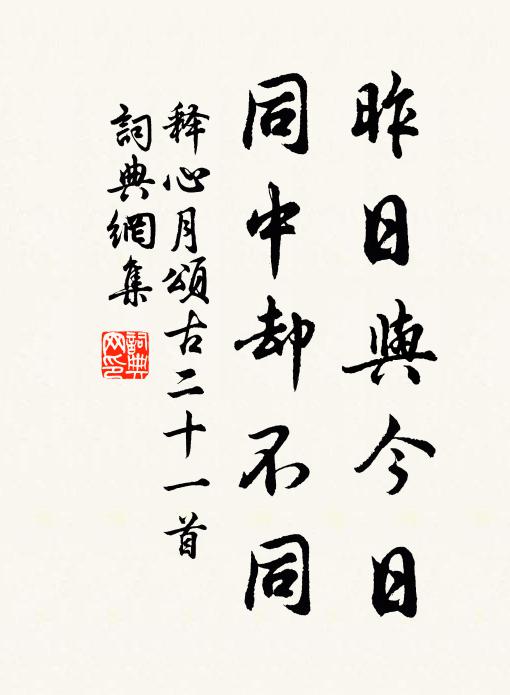 昨日與今日
同中却不同
释心月頌古二十一首
詞典網集
詞典網印